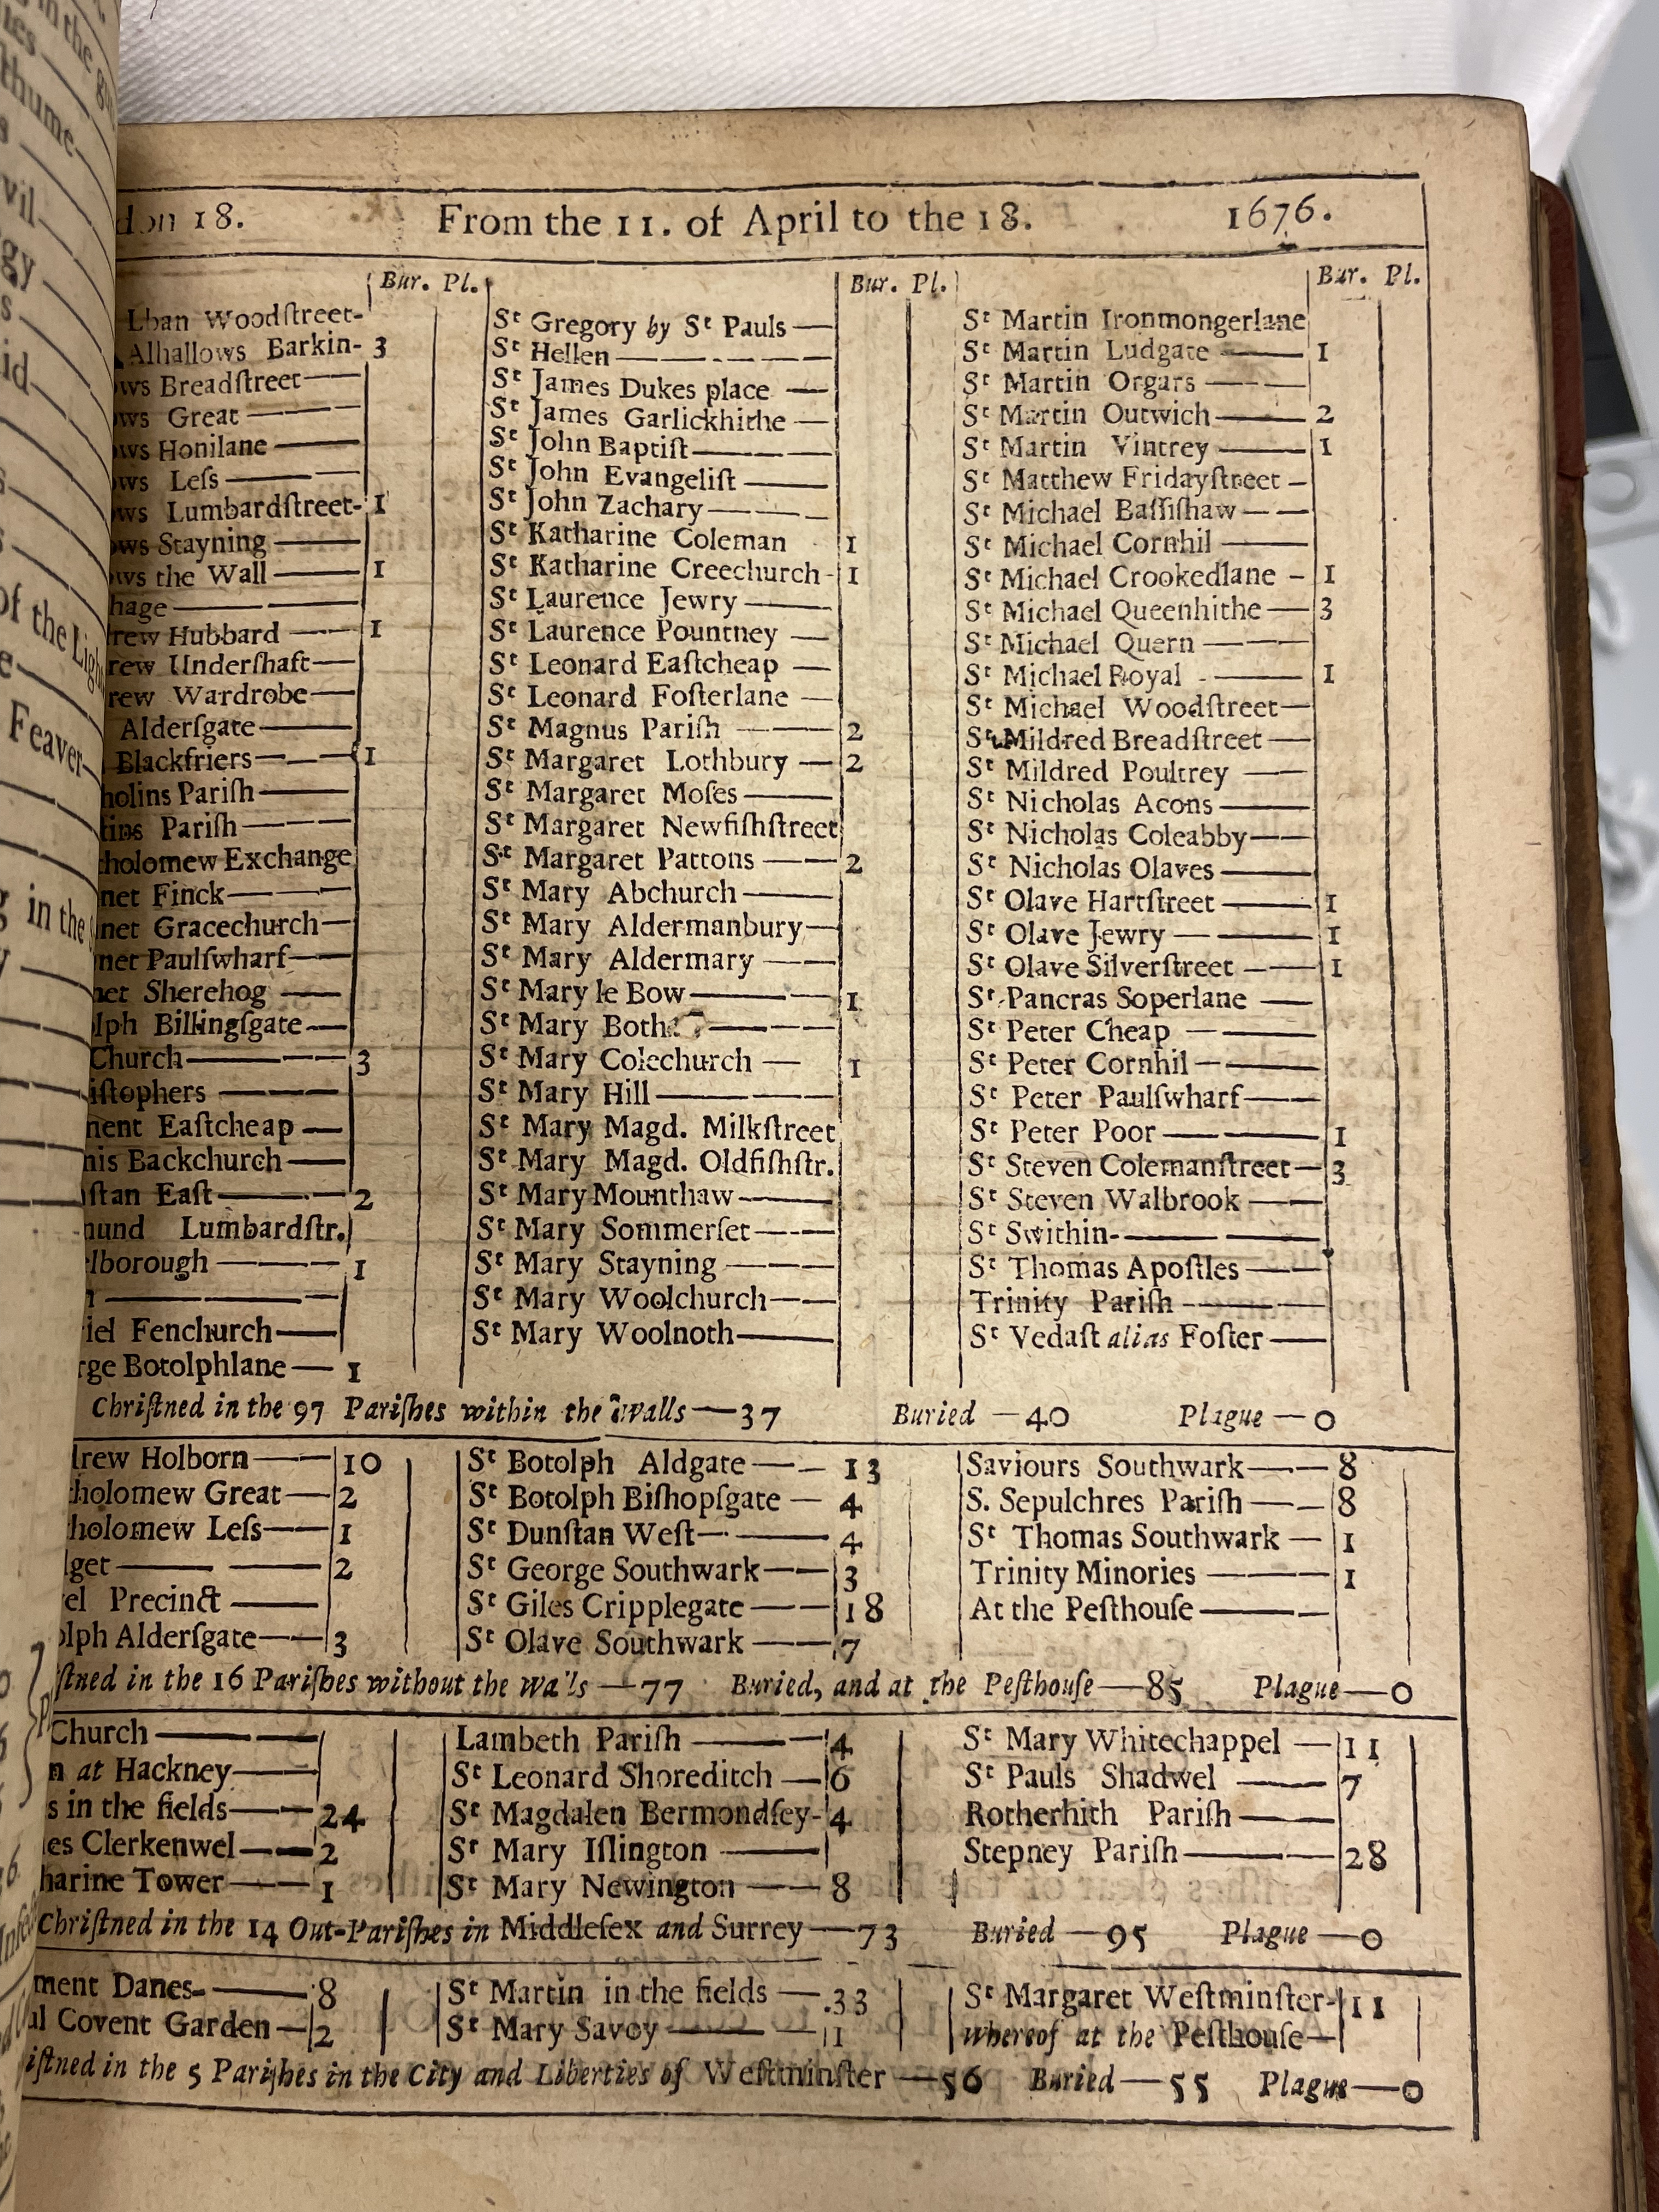 18. From the 11. of April to the 18. 1676.
Bur. Pl.
Lban Woodſtreet-
Alhallows Barkin- 3
ows Breadſtreet —
ows Great ———
ows Honilane ——
ows Leſs ———
ows Lumbardſtreet- 1
ows Stayning ——
ows the Wall —— 1
hage ———
rew Hubbard —— 1
rew Underſhaft—
rew Wardrobe—
Alderſgate——
Blackfriers——— 1
holins Pariſh——
tins Pariſh———
holomew Exchange
net Finck———
net Gracechurch—
net Paulſwharf—
net Sherehog ——
lph Billingſgate—
Church——— 3
iſtophers ———
ment Eaſtcheap —
nis Backchurch—
ſtan Eaſt——— 2
mund Lumbardſtr.
lborough ——— 1
———
iel Fenchurch——
rge Botolphlane — 1
Bur. Pl.
St Gregory by St Pauls —
St Hellen ————
St James Dukes place —
St James Garlickhithe —
St John Baptiſt———
St John Evangeliſt ——
St John Zachary———
St Katharine Coleman 1
St Katharine Creechurch - 1
St Laurence Jewry ——
St Laurence Pountney —
St Leonard Eaſtcheap —
St Leonard Foſterlane —
St Magnus Pariſh ——— 2
St Margaret Lothbury — 2
St Margaret Moſes ——
St Margaret Newfiſhſtreet
St Margaret Pattons —— 2
St Mary Abchurch ——
St Mary Aldermanbury—
St Mary Aldermary ——
St Mary le Bow——— 1
St Mary Both ———
St Mary Colechurch — 1
St Mary Hill ———
St Mary Magd. Milkſtreet
St Mary Magd. Oldfiſhſtr.
St Mary Mounthaw——
St Mary Sommerſet——
St Mary Stayning ———
St Mary Woolchurch——
St Mary Woolnoth——
Bur. Pl.
St Martin Ironmongerlane
St Martin Ludgate —— 1
St Martin Orgars ———
St Martin Outwich—— 2
St Martin Vintrey —— 1
St Matthew Fridayſtreet –
St Michael Baſſiſhaw ——
St Michael Cornhil ——
St Michael Crookedlane – 1
St Michael Queenhithe— 3
St Michael Quern ———
St Michael Royal - —— 1
St Michael Woodſtreet—
St Mildred Breadſtreet —
St Mildred Poultrey ——
St Nicholas Acons ——
St Nicholas Coleabby——
St Nicholas Olaves——
St Olave Hartſtreet —— 1
St Olave Jewry ——— 1
St Olave Silverſtreet —— 1
St Pancras Soperlane —
St Peter Cheap ———
St Peter Cornhil ———
St Peter Paulſwharf——
St Peter Poor ——— 1
St Steven Colemanſtreet— 3
St Steven Walbrook ——
St Swithin- ———
St Thomas Apoſtles ——
Trinity Pariſh ———
St Vedaſt alias Foſter ——
Chriſtned in the 97 Pariſhes within the Walls — 37 Buried — 40 Plague — 0
drew Holborn —— 10
tholomew Great— 2
tholomew Leſs—— 1
dget——— 2
el Precinct ——
olph Alderſgate—— 3
St Botolph Aldgate —— 13
St Botolph Biſhopſgate — 4
St Dunſtan Weſt——— 4
St George Southwark—— 3
St Giles Cripplegate—— 18
St Olave Southwark —— 7
Saviours Southwark—— 8
S. Sepulchres Pariſh —— 8
St Thomas Southwark — 1
Trinity Minories ——— 1
At the Peſthouſe———
ſtned in the 16 Pariſhes without the Walls — 77 Buried, and at the Peſthouſe— 85 Plague— 0
Church ———
n at Hackney——
s in the fields—— 24
es Clerkenwel—— 2
harine Tower —— 1
Lambeth Pariſh ——— 4
St Leonard Shoreditch — 6
St Magdalen Bermondſey- 4
St Mary Iſlington ——
St Mary Newington —— 8
St Mary Whitechappel — 11
St Pauls Shadwel —— 7
Rotherhith Pariſh ——
Stepney Pariſh ——— 28
Chriſtned in the 14 Out-Pariſhes in Middleſex and Surrey — 73 Buried — 95 Plague — 0
ment Danes- —— 8
ul Covent Garden — 2
St Martin in the fields — 33
St Mary Savoy ——— 1
St Margaret Weſtminſter- 11
whereof at the Peſthouſe—
iſtned in the 5 Pariſhes in the City and Liberties of Weſtminſter — 56 Buried— 55 Plague— 0